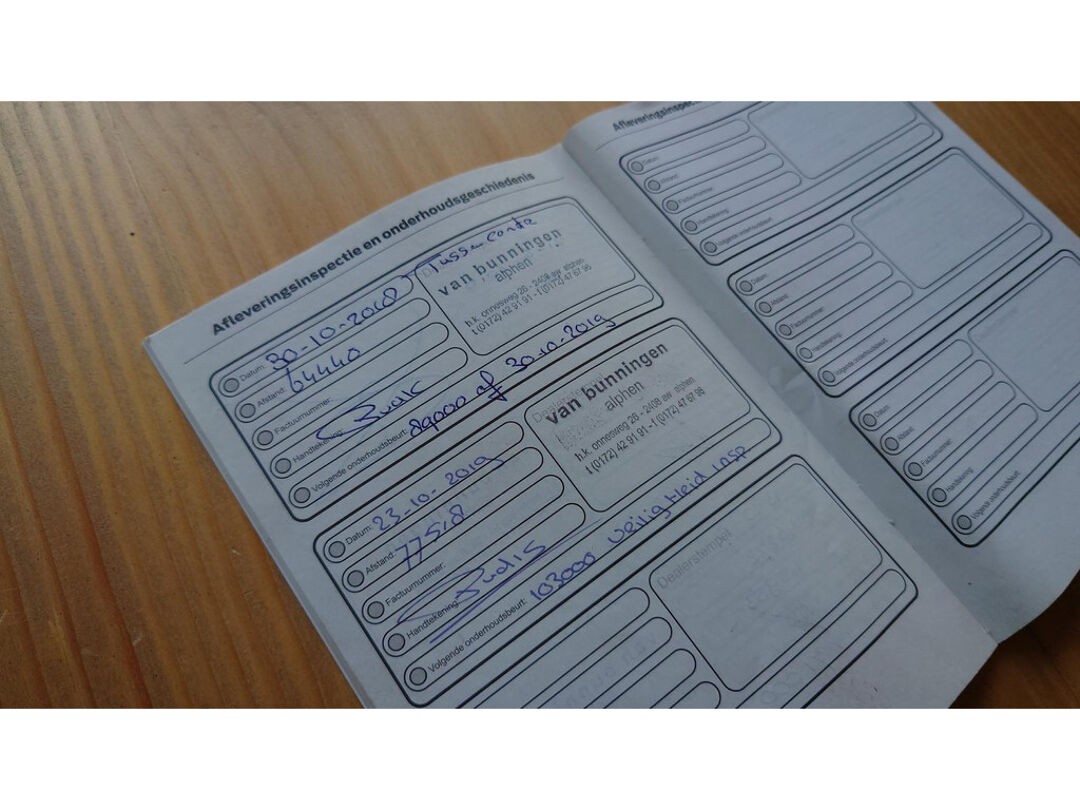 Afleveringsinspectie en onderhoudsgeschiedenis
Datum: 30-10-2018
Afstand: 64440
Factuurnummer:
Handtekening:
Volgende onderhoudsbeurt: 89000 of 30-10-2019
van bunningen
alphen
h.k. onnesweg 26 - 2408 aw alphen
t (0172) 42 91 91 - f (0172) 47 67 96
Datum: 23-10-2019
Afstand: 77518
Factuurnummer:
Handtekening:
Volgende onderhoudsbeurt: 103000 veiligheid insp
van bunningen
alphen
h.k. onnesweg 26 - 2408 aw alphen
t (0172) 42 91 91 - f (0172) 47 67 96
Dealerstempel
Datum:
Afstand:
Factuurnummer:
Handtekening:
Volgende onderhoudsbeurt:
Datum:
Afstand:
Factuurnummer:
Handtekening:
Volgende onderhoudsbeurt:
Datum:
Afstand:
Factuurnummer:
Handtekening:
Volgende onderhoudsbeurt: